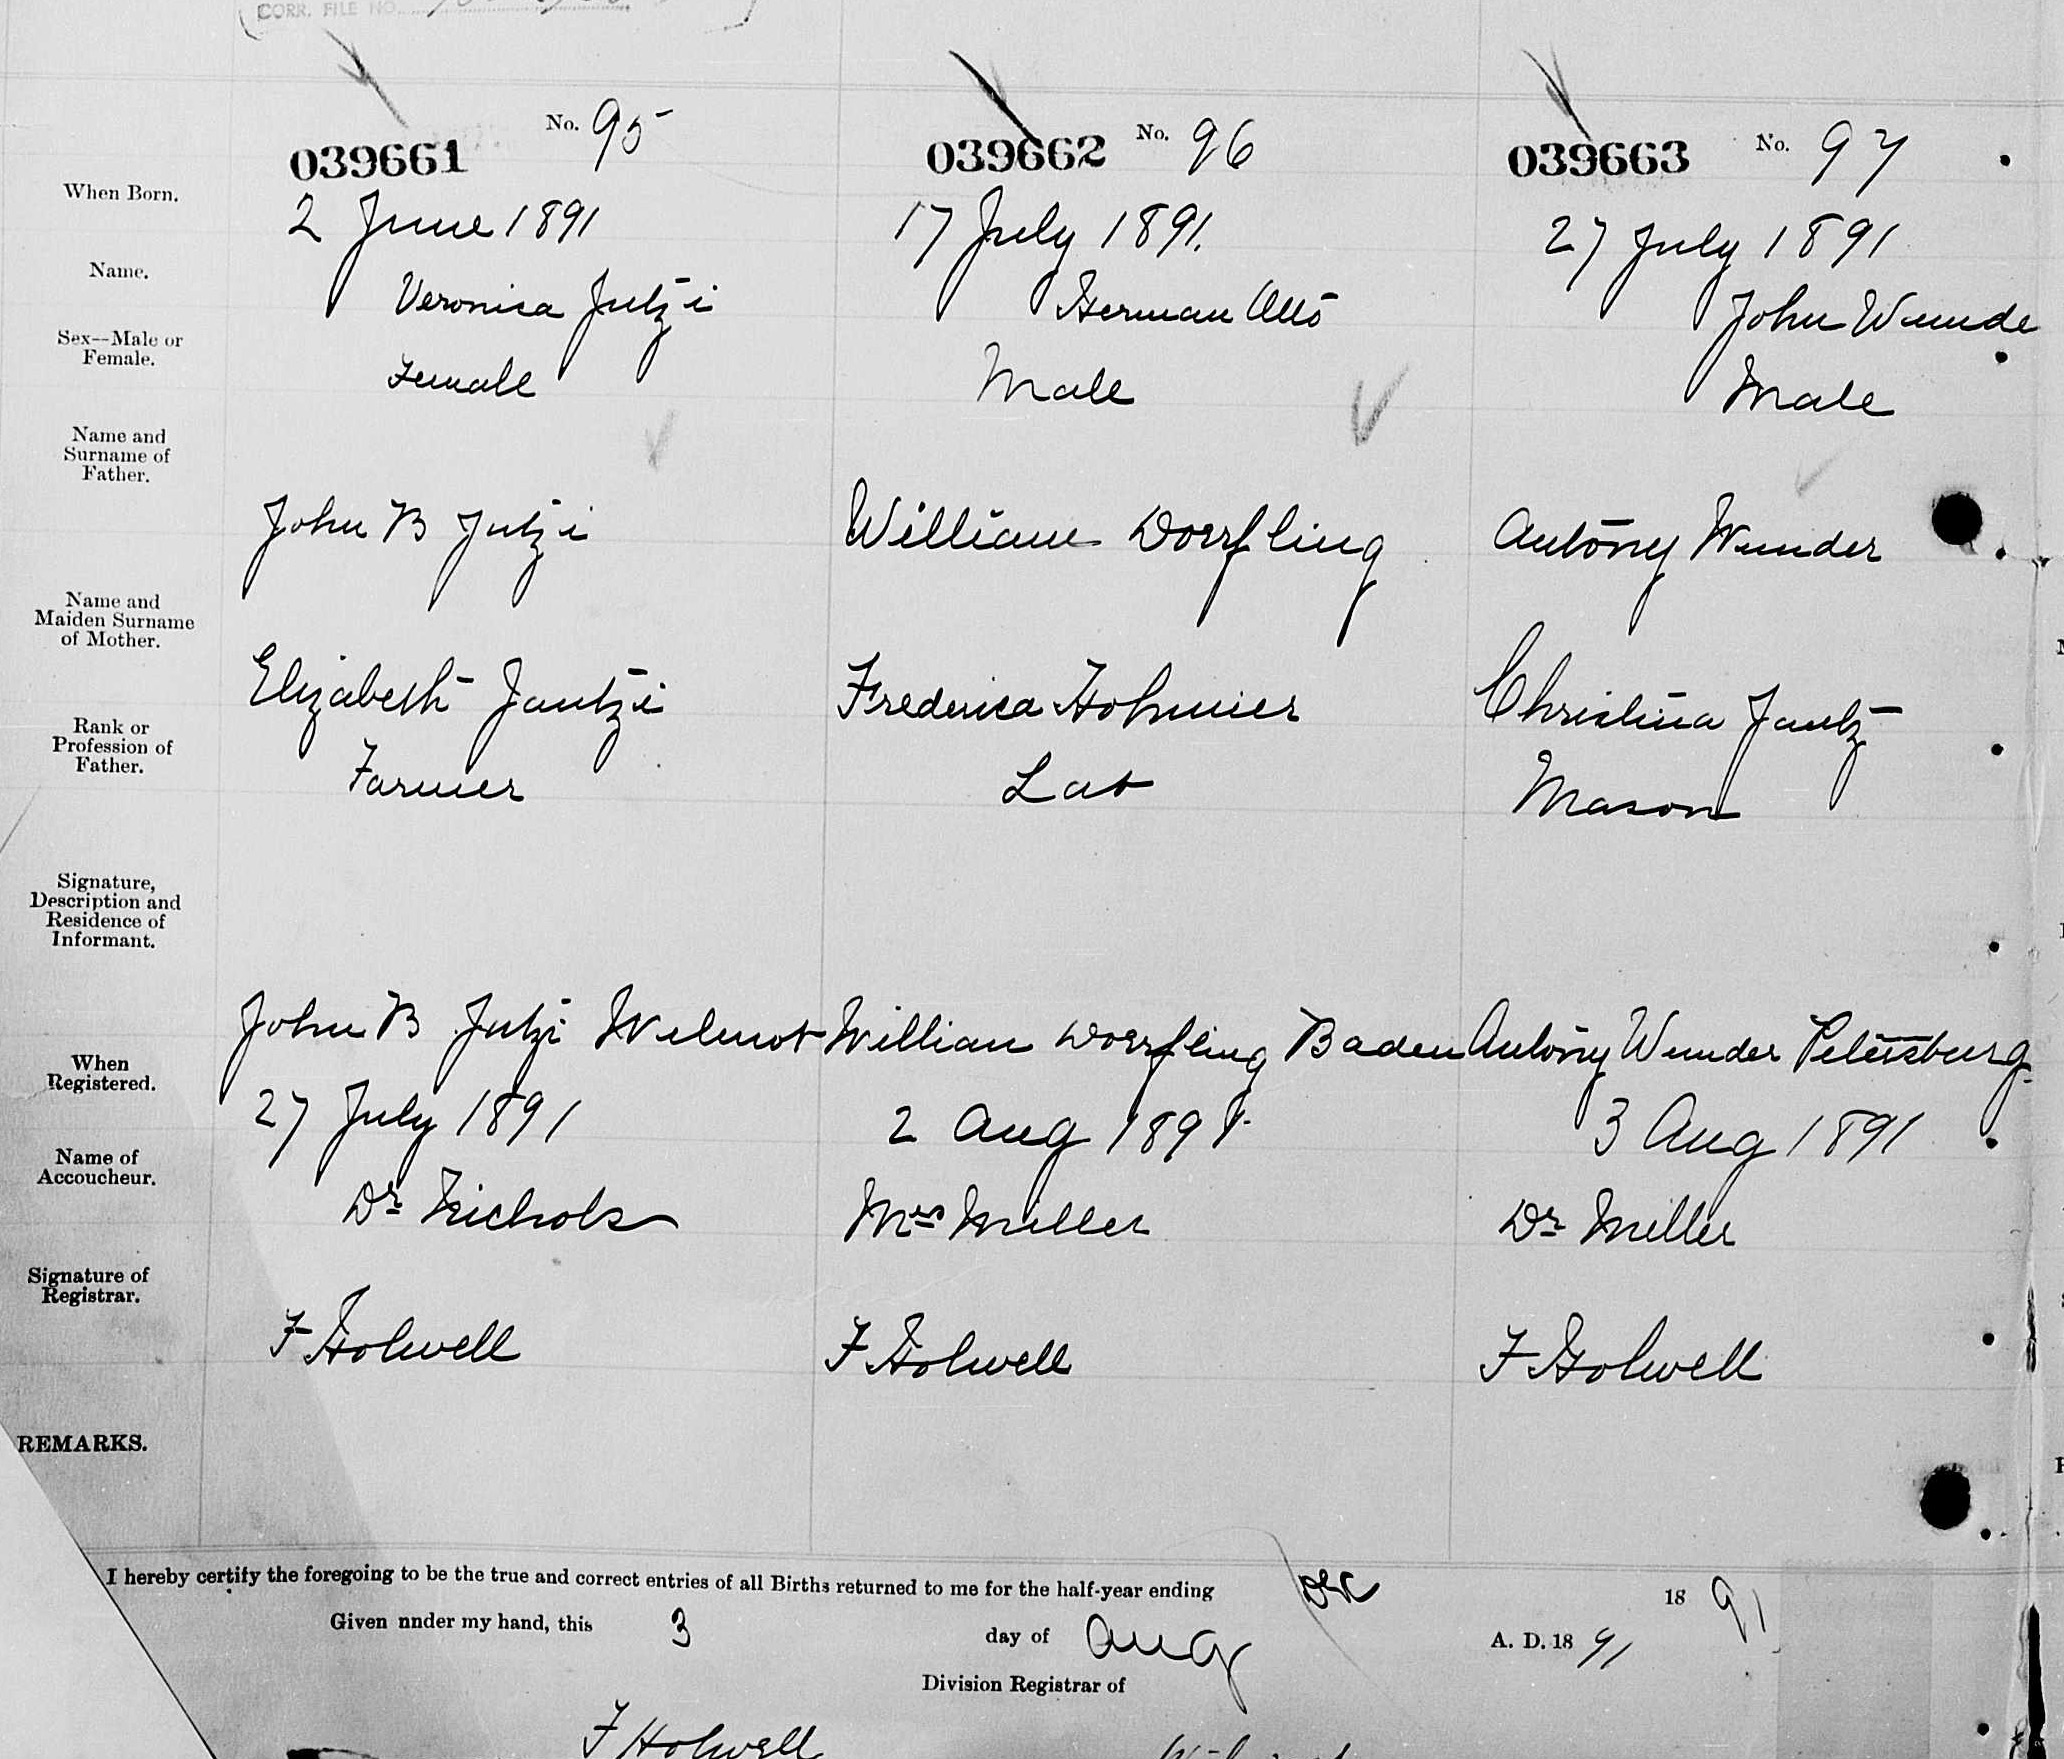 CORR. FILE NO.
No. 95 No. 96 No. 97
039661 039662 039663
When Born. 2 June 1891 17 July 1891. 27 July 1891
Name. Veronica Jutzi Herman Otto John Wunde
Sex--Male or
Female. Female Male Male
Name and
Surname of
Father. John B Jutzi William Doerfling Antony Wunder
Name and
Maiden Surname
of Mother. Elizabeth Jantzi Frederica Hohmier Christina Jantz
Rank or
Profession of
Father. Farmer Lab Mason
Signature,
Description and
Residence of
Informant. John B Jutzi Wilmot William Doerfling Baden Antony Wunder Petersburg
When
Registered. 27 July 1891 2 Aug 1891 3 Aug 1891
Name of
Accoucheur. Dr Nichols Mrs Miller Dr Miller
Signature of
Registrar. F Holwell F Holwell F Holwell
REMARKS.
I hereby certify the foregoing to be the true and correct entries of all Births returned to me for the half-year ending Dec 18 91
Given nnder my hand, this 3 day of Aug A. D. 18 91
Division Registrar of
F Holwell